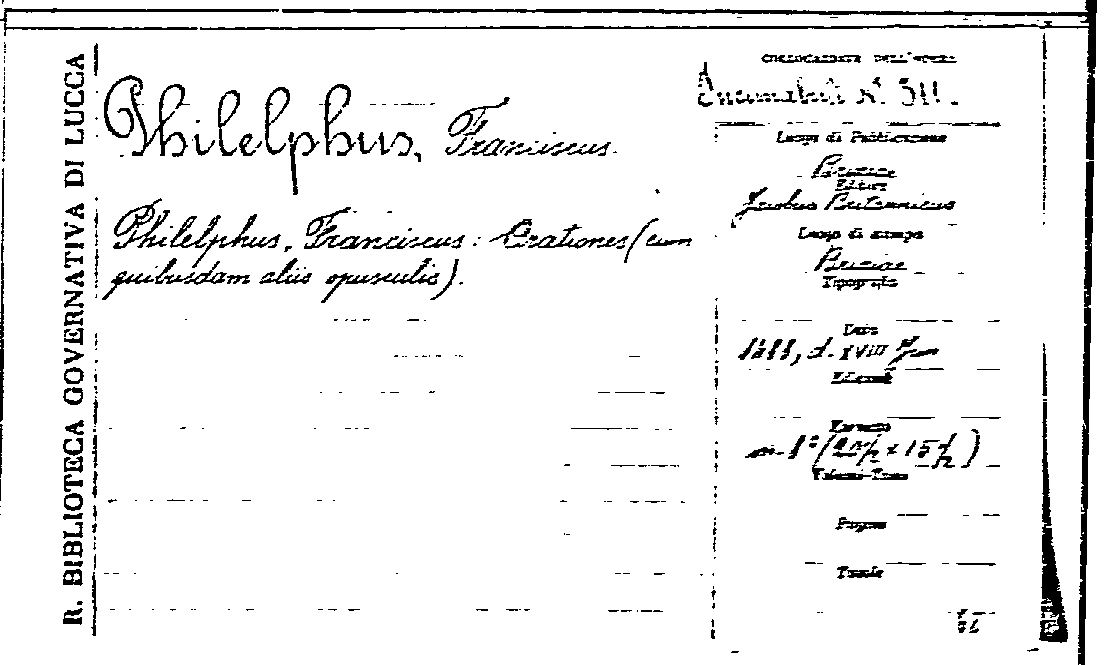 R. BIBLIOTECA GOVERNATIVA DI LUCCA
Philelphus, Franciscus.
Philelphus, Franciscus: Orationes (cum
quibusdam aliis opusculis).
COLLOCAZIONE DELL'OPERA
Incunabuli N. 511.
Luogo di Pubblicazione
Brixiae
Editore
Jacobus Britannicus
Luogo di stampa
Brixiae
Tipografo
Data
d. XVIII Jun
Edizione
Formato
in
Volumi-Tomo
Pagine
Tavole